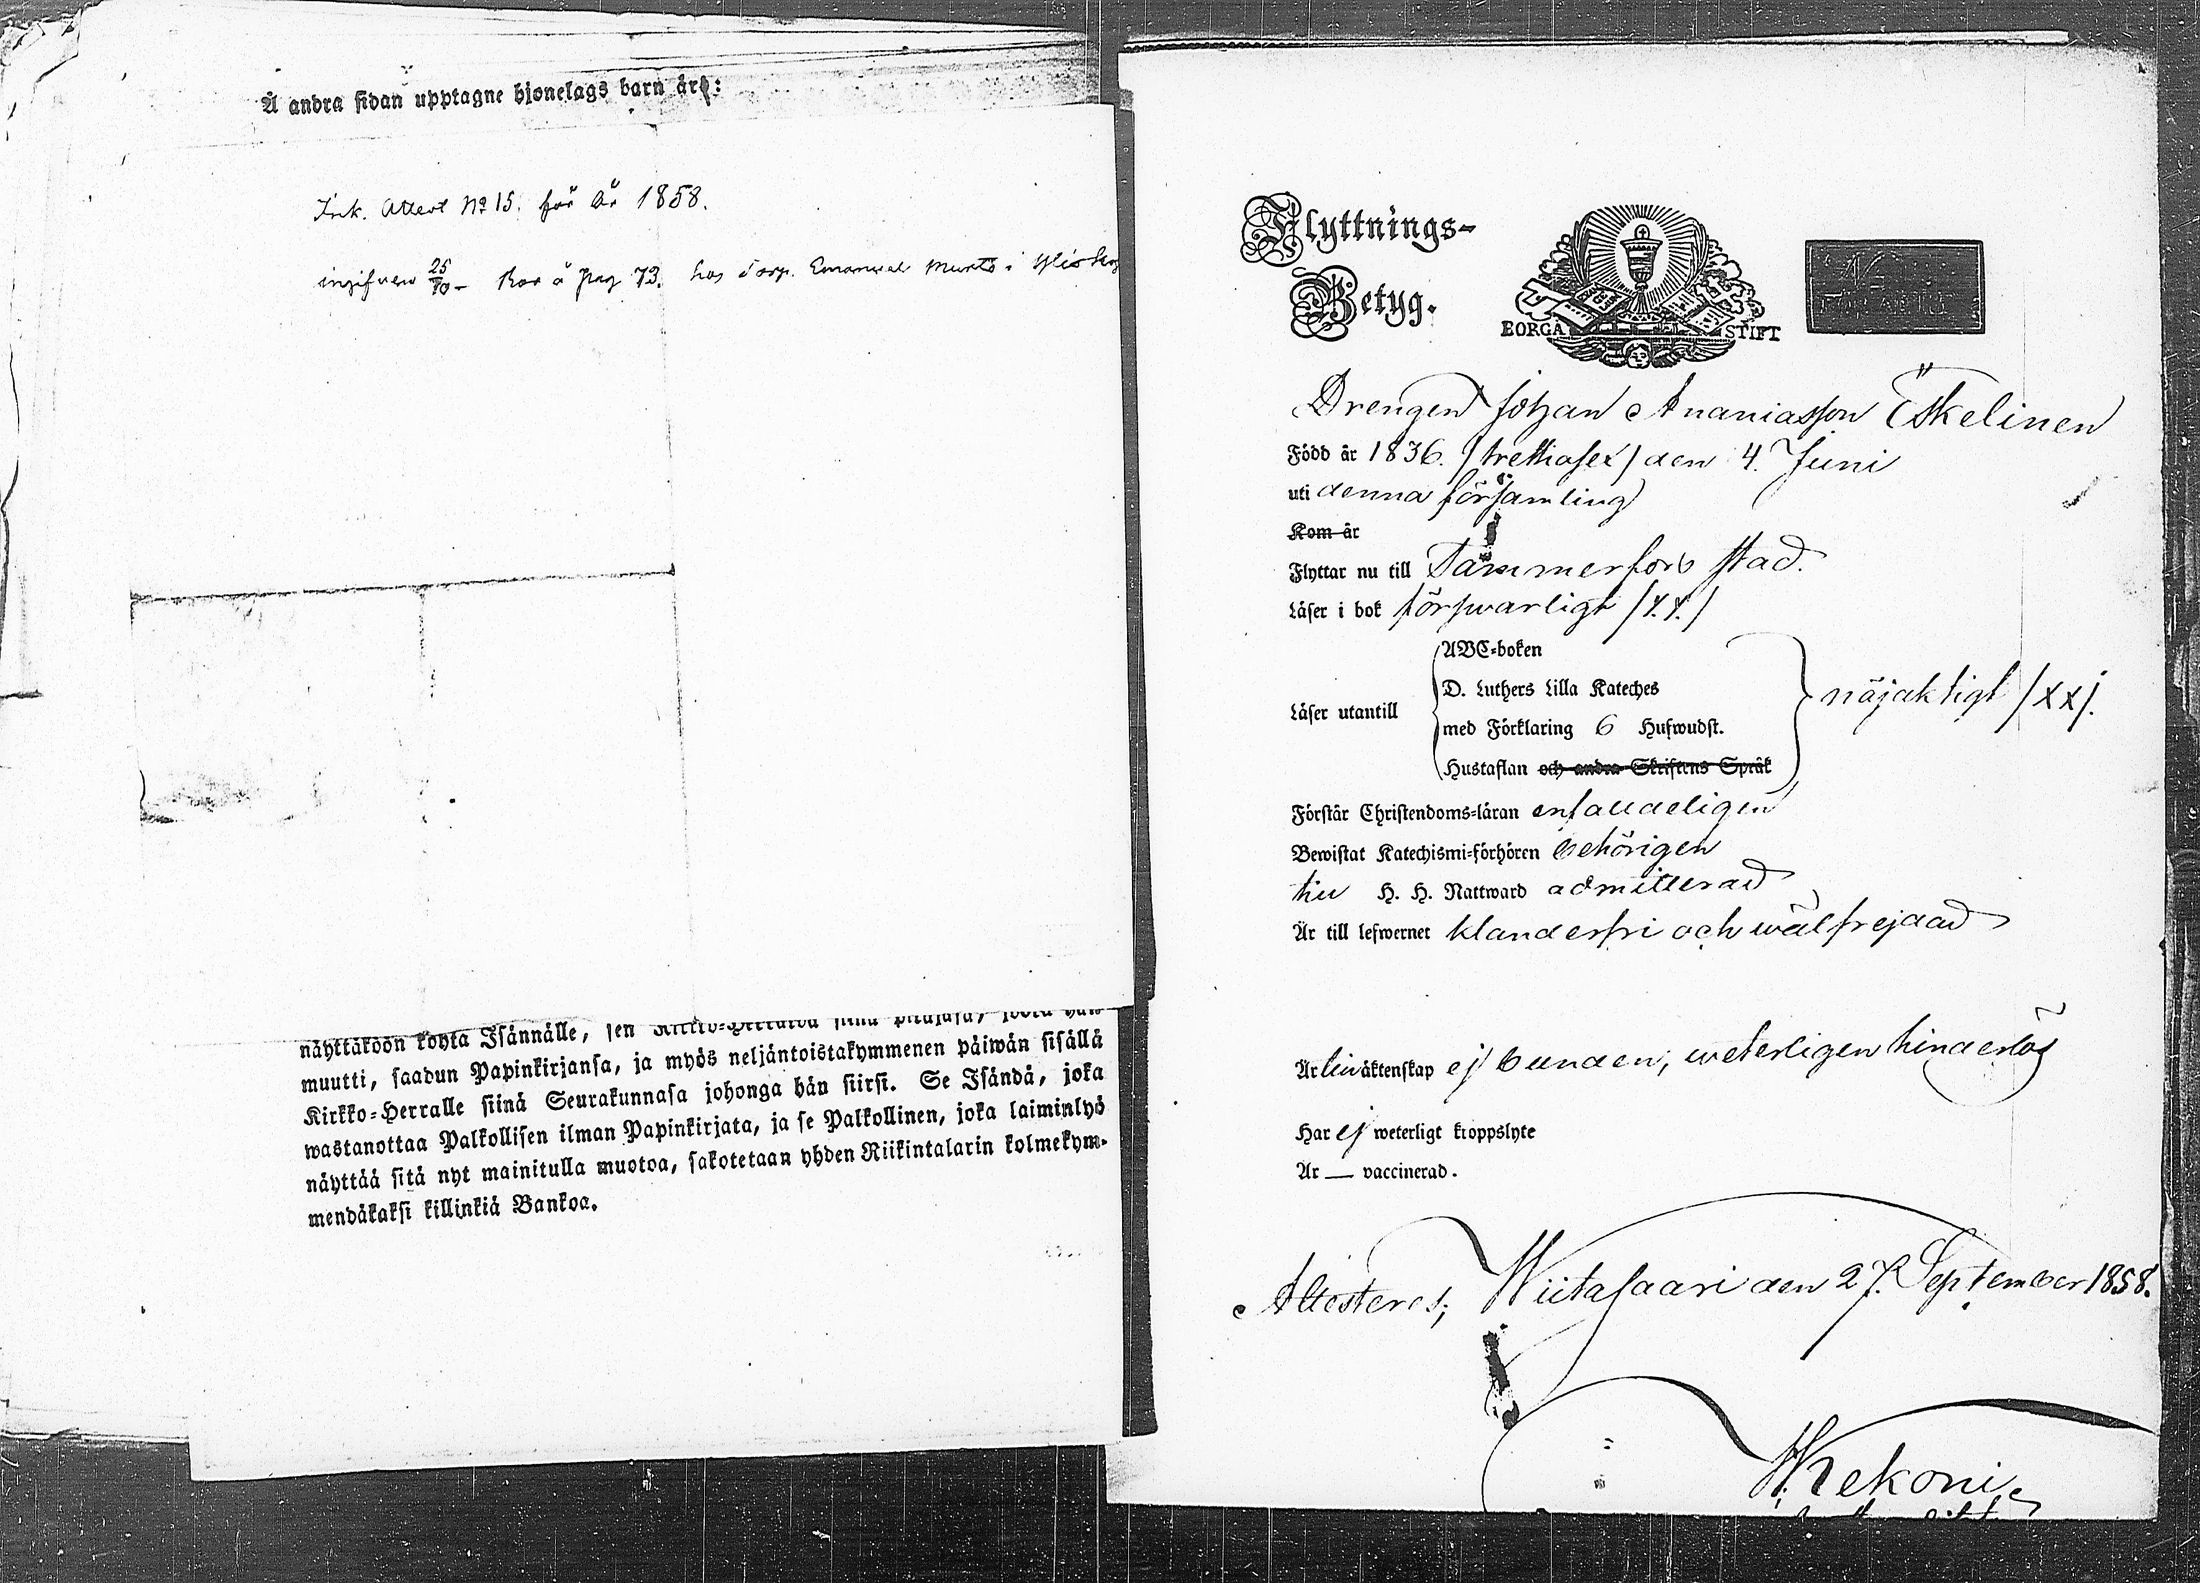 Å andra sidan upptagne hjonelags barn äro:
Ink. Attest No 15. för år 1858.
ingifven 25/10 - Bor å pag 73. hos Torp. Emanuel i
näyttäköön kohta Isännälle, sen
muutti, saadun Papinkirjansa, ja myös neljäntoistakymmenen päiwän sisällä
Kirkko-Herralle siinä Seurakunnasa johonga hän siirsi. Se Isändä, joka
wastanottaa Palkollisen ilman Papinkirjata, ja se Palkollinen, joka laiminlyö
näyttää sitä nyt mainitulla muotoa, sakotetaan yhden Riikintalarin kolmekym-
mendäkaksi killinkiä Bankoa.
Flyttnings-
Betyg.
BORGÅ STIFT
Drengen Johan Ananiasson Eskelinen
Född år 1836. /trettiosex/ den 4. Juni
uti denna församling
Kom år
Flyttar nu till Tammerfors stad.
Läser i bok försvarligt
Läser utantill
ABC-boken
D. Luthers Lilla Kateches
med Förklaring 6 Hufwudst.
Hustaflan och andra Skriftens Språk
nöjaktigt /xx/.
Förstår Christendoms-läran enfaldeligen
Bewistat Katechismi-förhören behörigen
till H. H. Nattward admitterad
Är till lefwernet klanderfri och wälfrejdad
Är till äktenskap ej bunden, weterligen hinderlös
Har ej weterligt kroppslyte
Är — vaccinerad.
Attesteras; Wiitasaari den 27. September 1858.